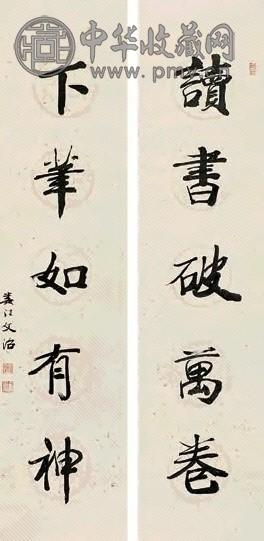 中华收藏网
讀書破萬卷
下筆如有神
婁江文治